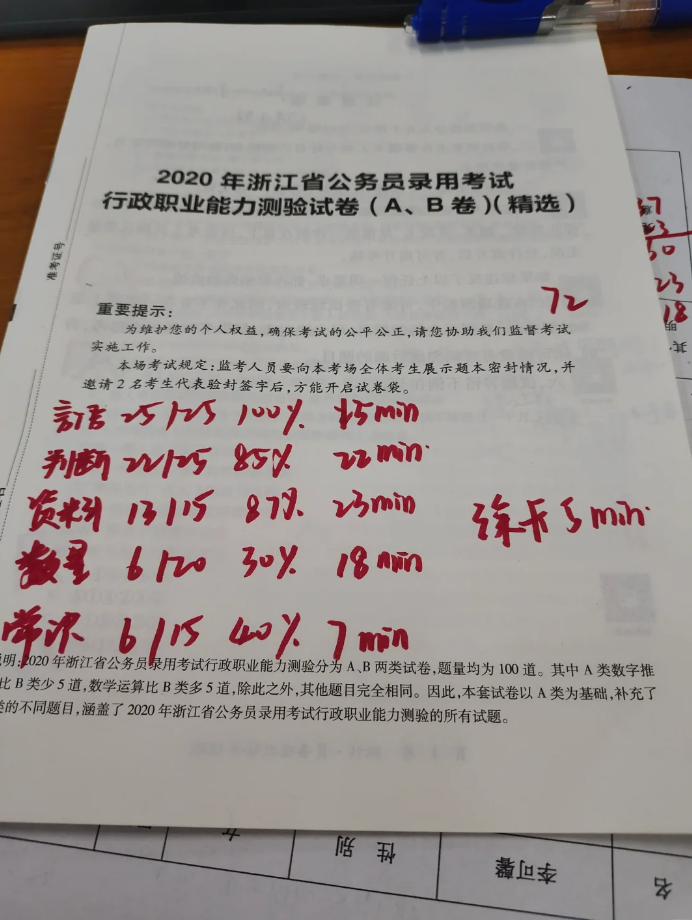 2020年浙江省公务员录用考试
行政职业能力测验试卷(A、B卷)(精选)
准考证号
72
重要提示:
为维护您的个人权益,确保考试的公平公正,请您协助我们监督考试
实施工作。
本场考试规定:监考人员要向本考场全体考生展示题本密封情况,并
邀请2名考生代表验封签字后,方能开启试卷袋。
言语 25/25 100% 15min
判断 22/25 85% 22min
资料 13/15 87% 23min
涂卡5min
数量 6/20 30% 18min
常识 6/15 40% 7min
明:2020年浙江省公务员录用考试行政职业能力测验分为A、B两类试卷,题量均为100道。其中A类数字推
比B类少5道,数学运算比B类多5道,除此之外,其他题目完全相同。因此,本套试卷以A类为基础,补充了
类的不同题目,涵盖了2020年浙江省公务员录用考试行政职业能力测验的所有试题。
37
23
18
性别
李可馨
名